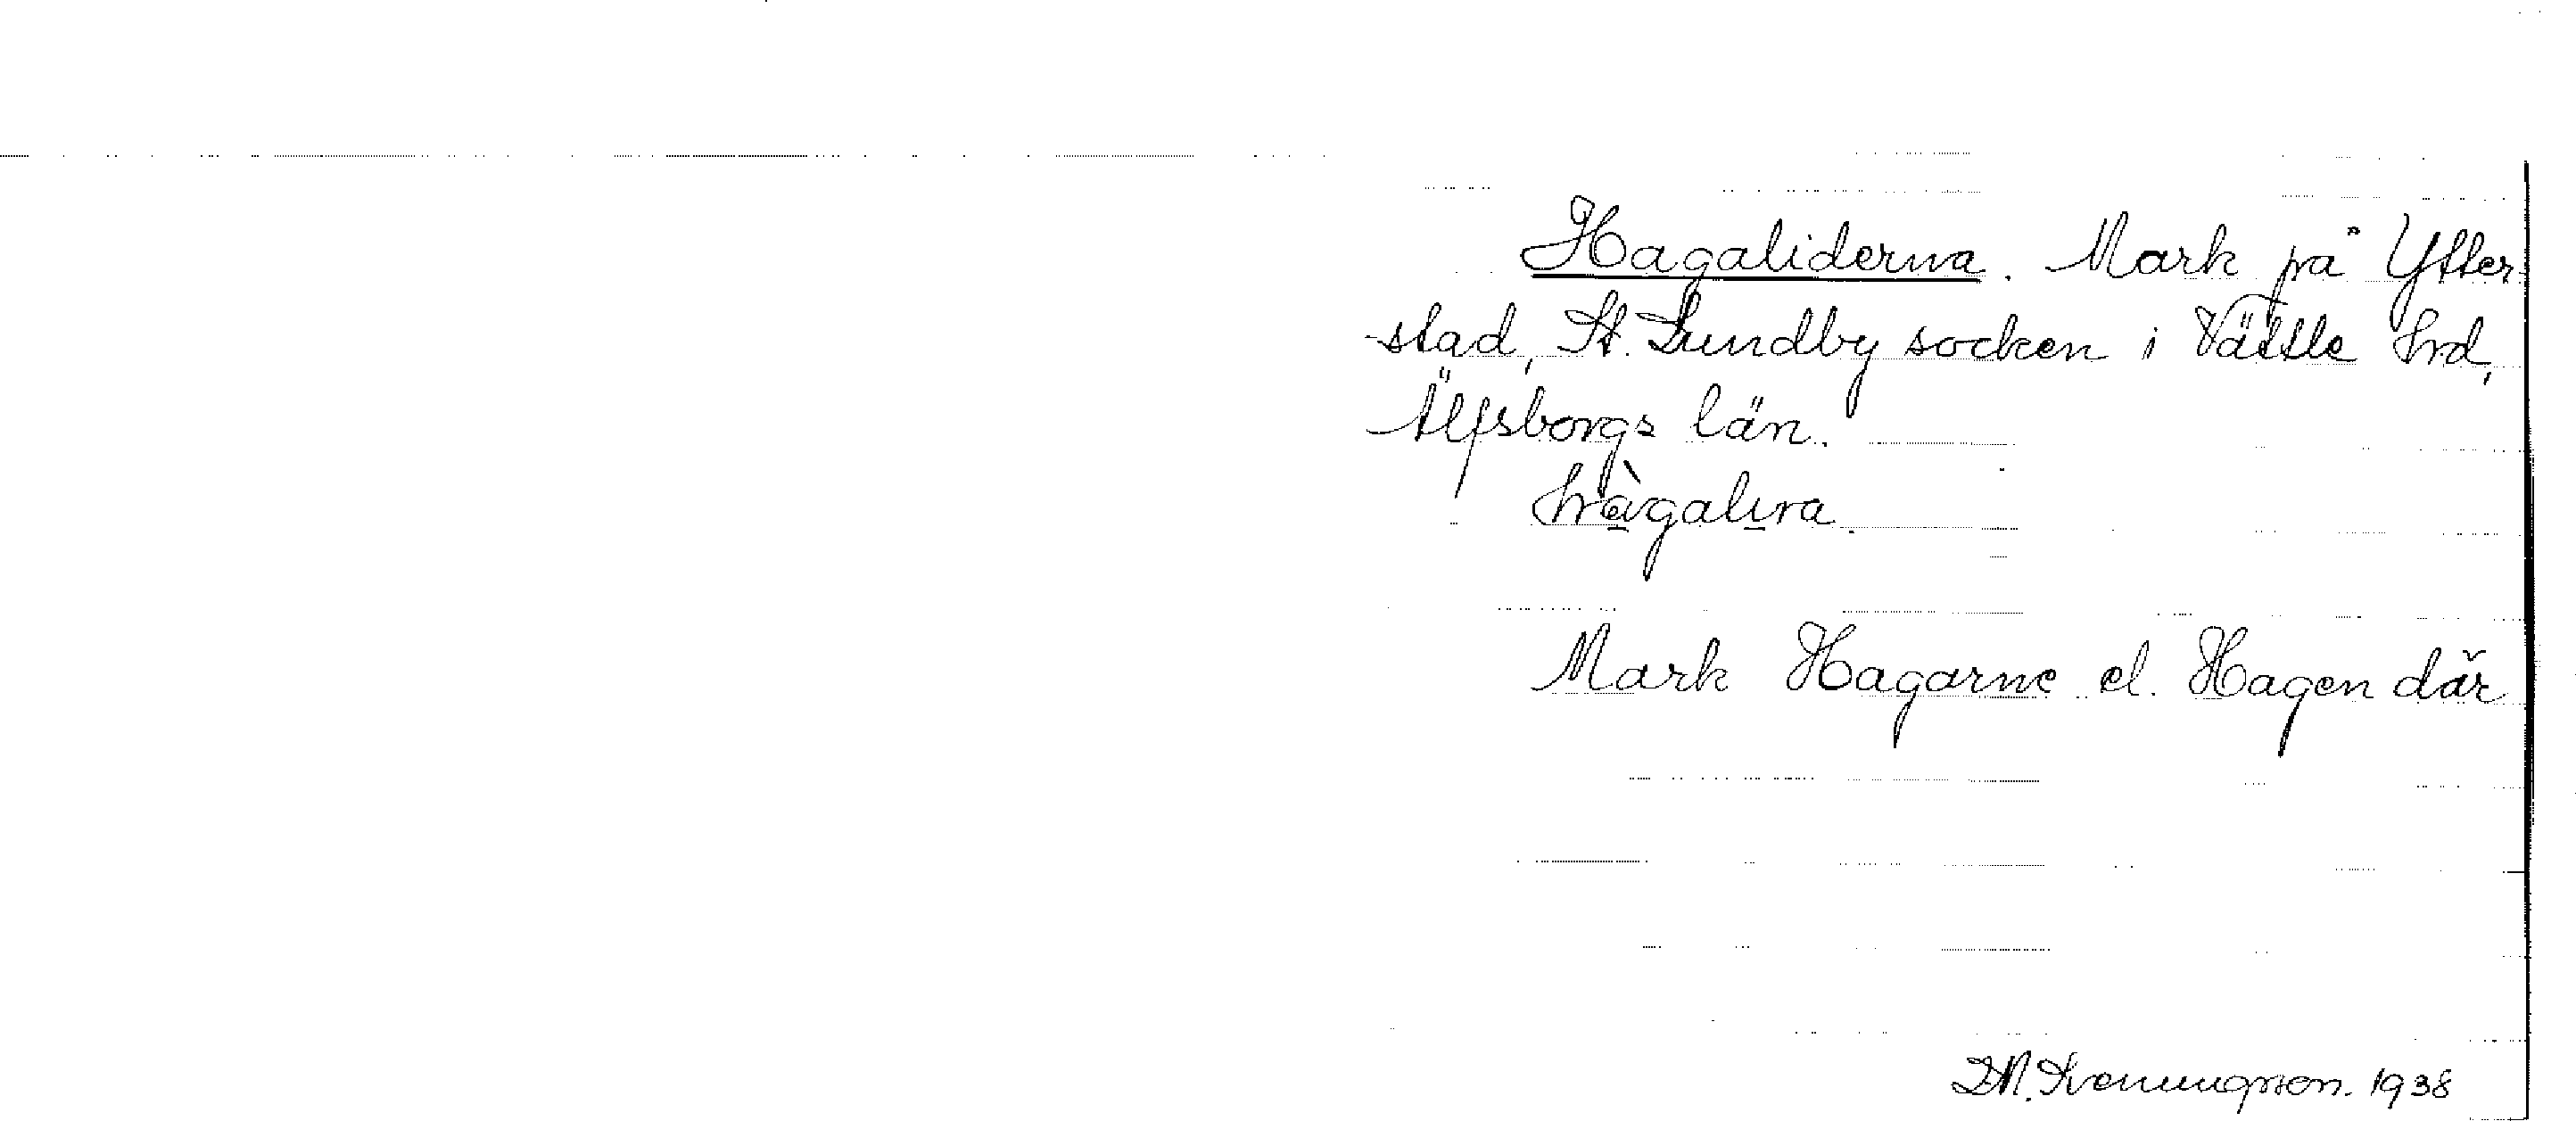 Hagaliderna. Mark på Ytter-
stad, St. Lundby socken i Vättle hrd,
Älfsborgs län.
hàgalıra
Mark Hagarne el. Hagen där
1938